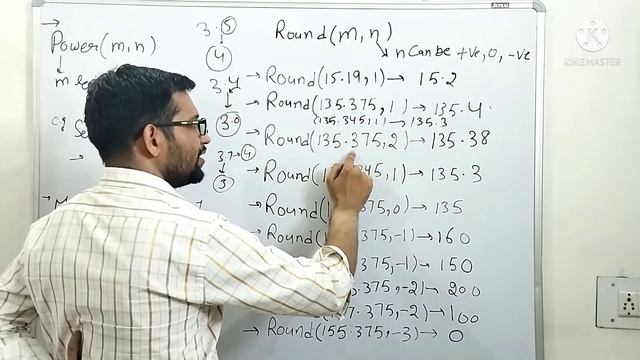 Power(m,n)
m
e.g
3.5
4
3.4
3.0
3.7→4
3
Round(m,n)
n Can be +ve, 0, -ve
→ Round(15.19,1)→ 15.2
→ Round(135.375,1)→135.4.
(135.345,1)→135.3
→ Round(135.375,2)→135.38
→ Round( 345,1)→135.3
→ Round( 375,0)→ 135
→ Round( .375,-1)→160
→ Round( .375,-1)→ 150
.375,-2)→ 200
.375,-2)→100
→ Round(155.375,-3)→ 0
KINEMASTER